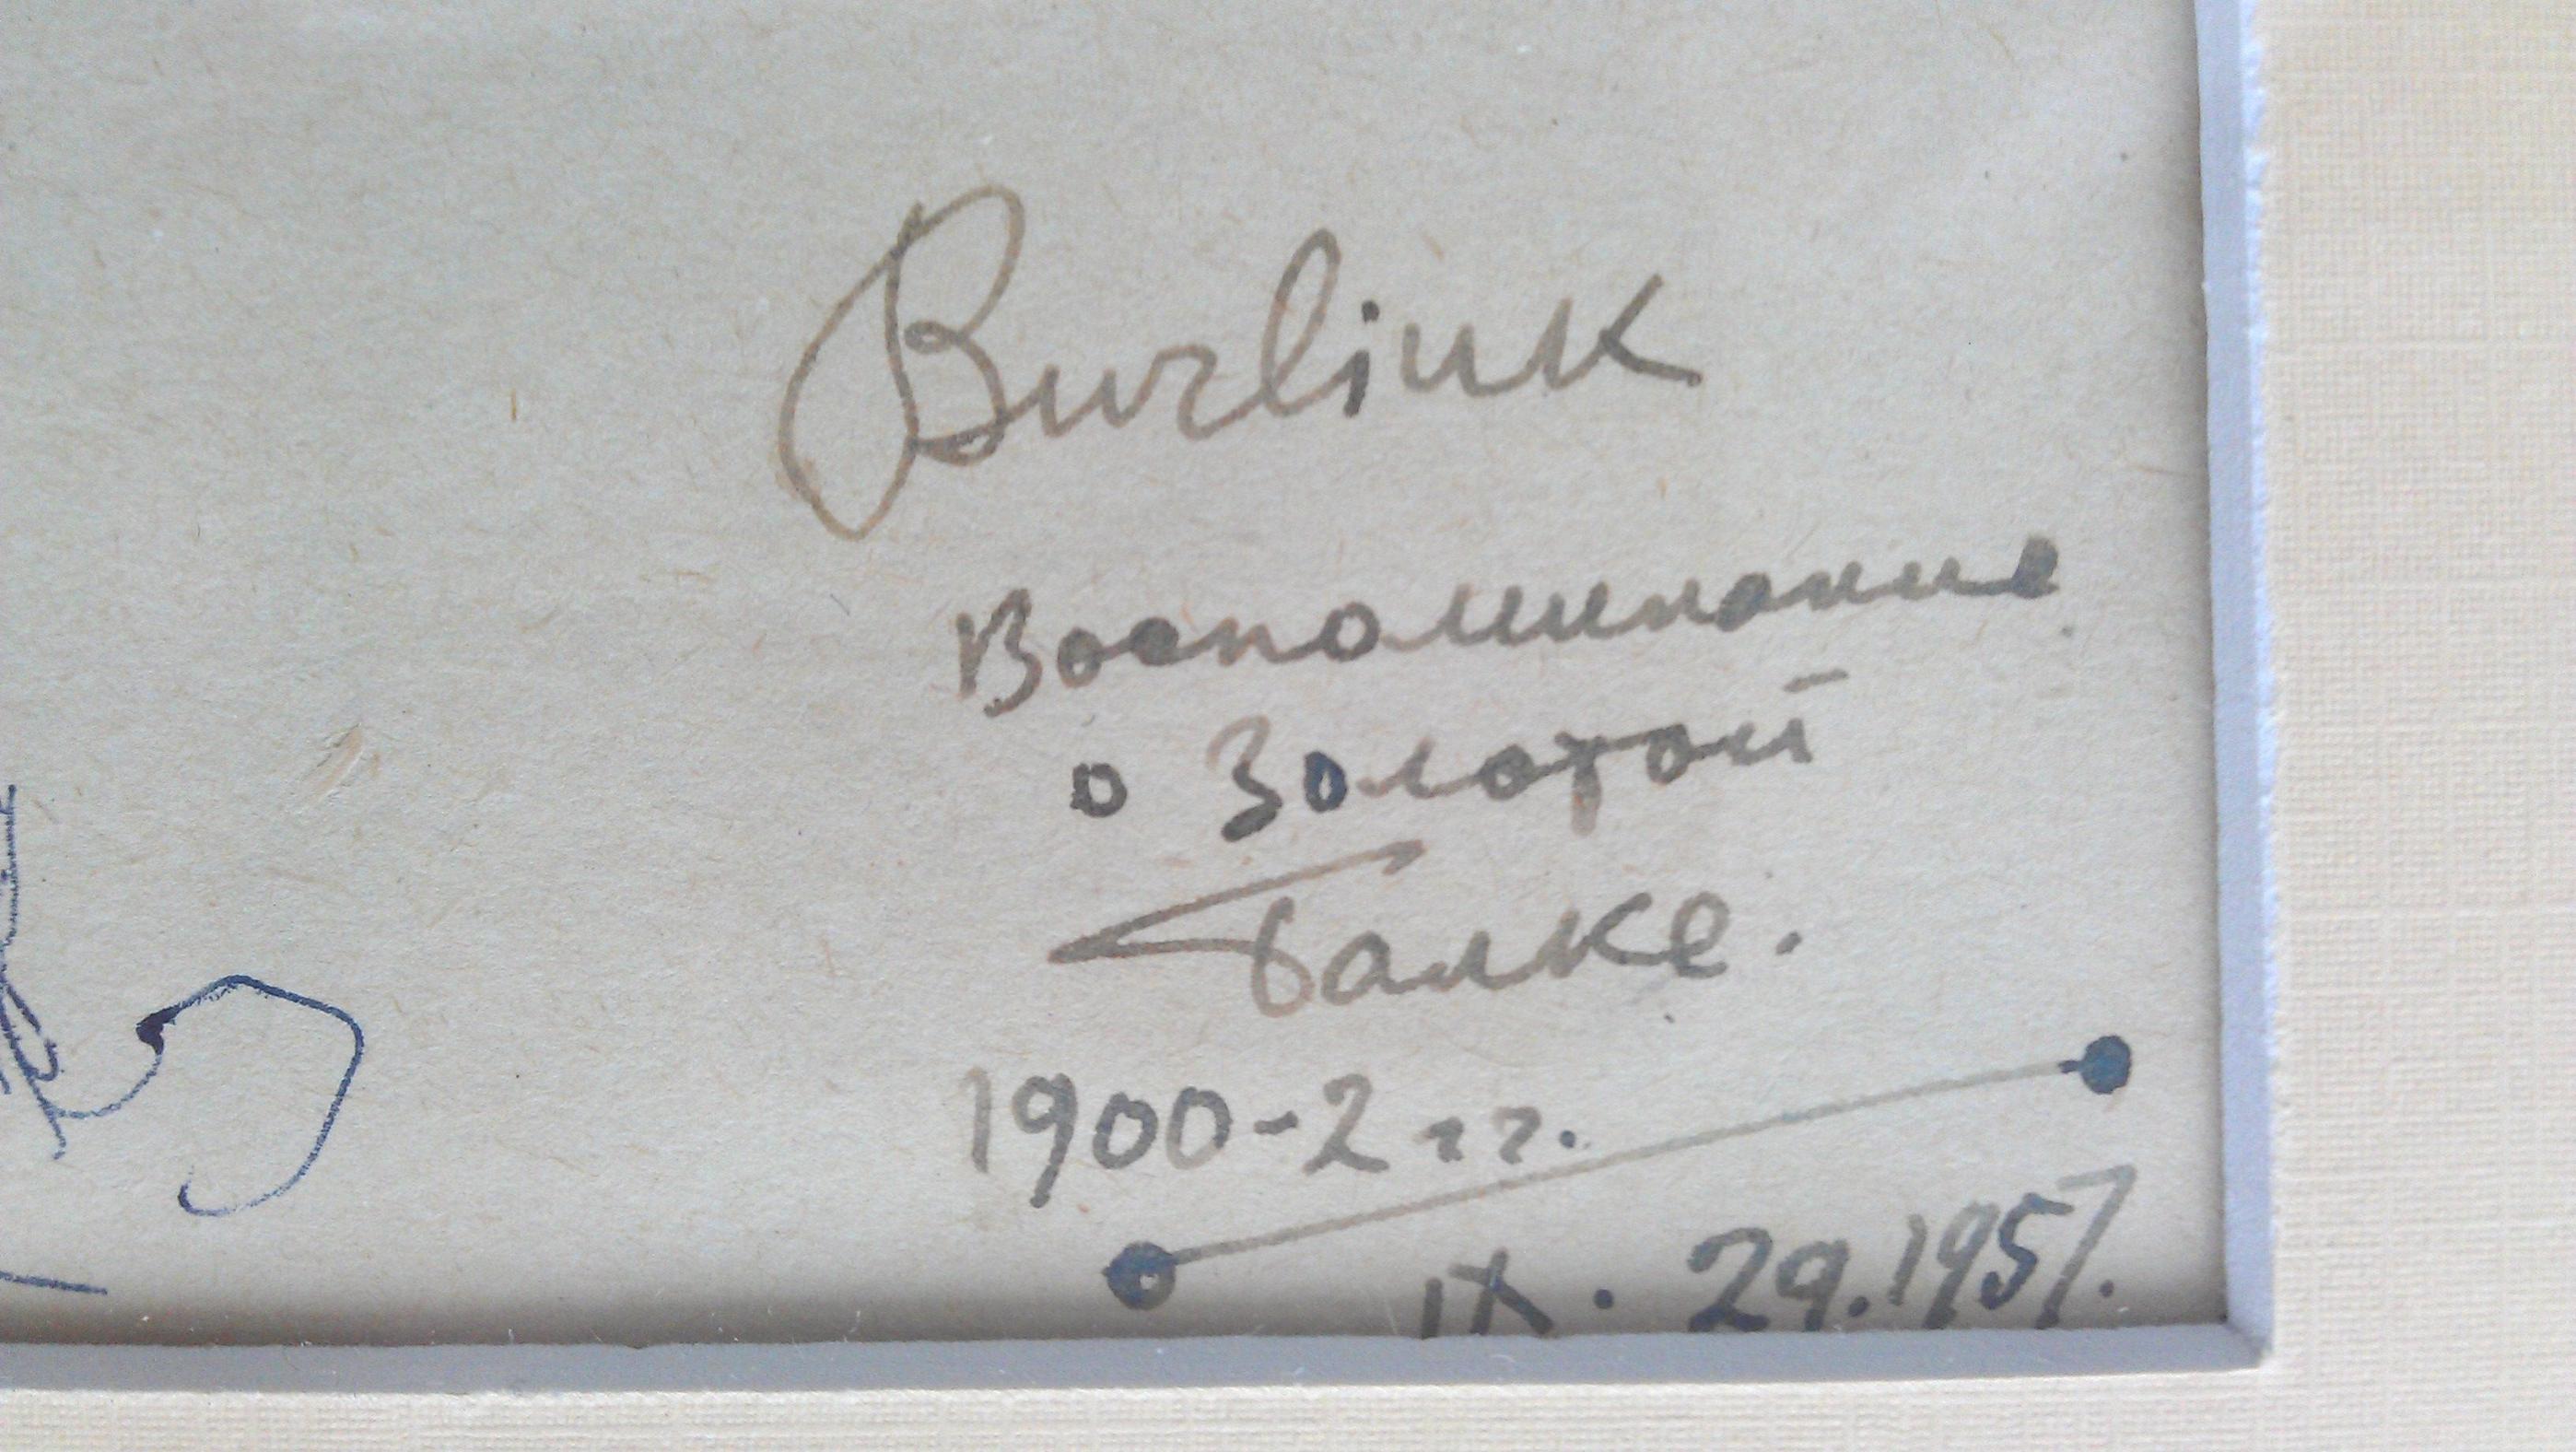 Burliuk
Воспоминание
о Золотой
Балке.
1900-2 гг.
IX. 29. 1957.